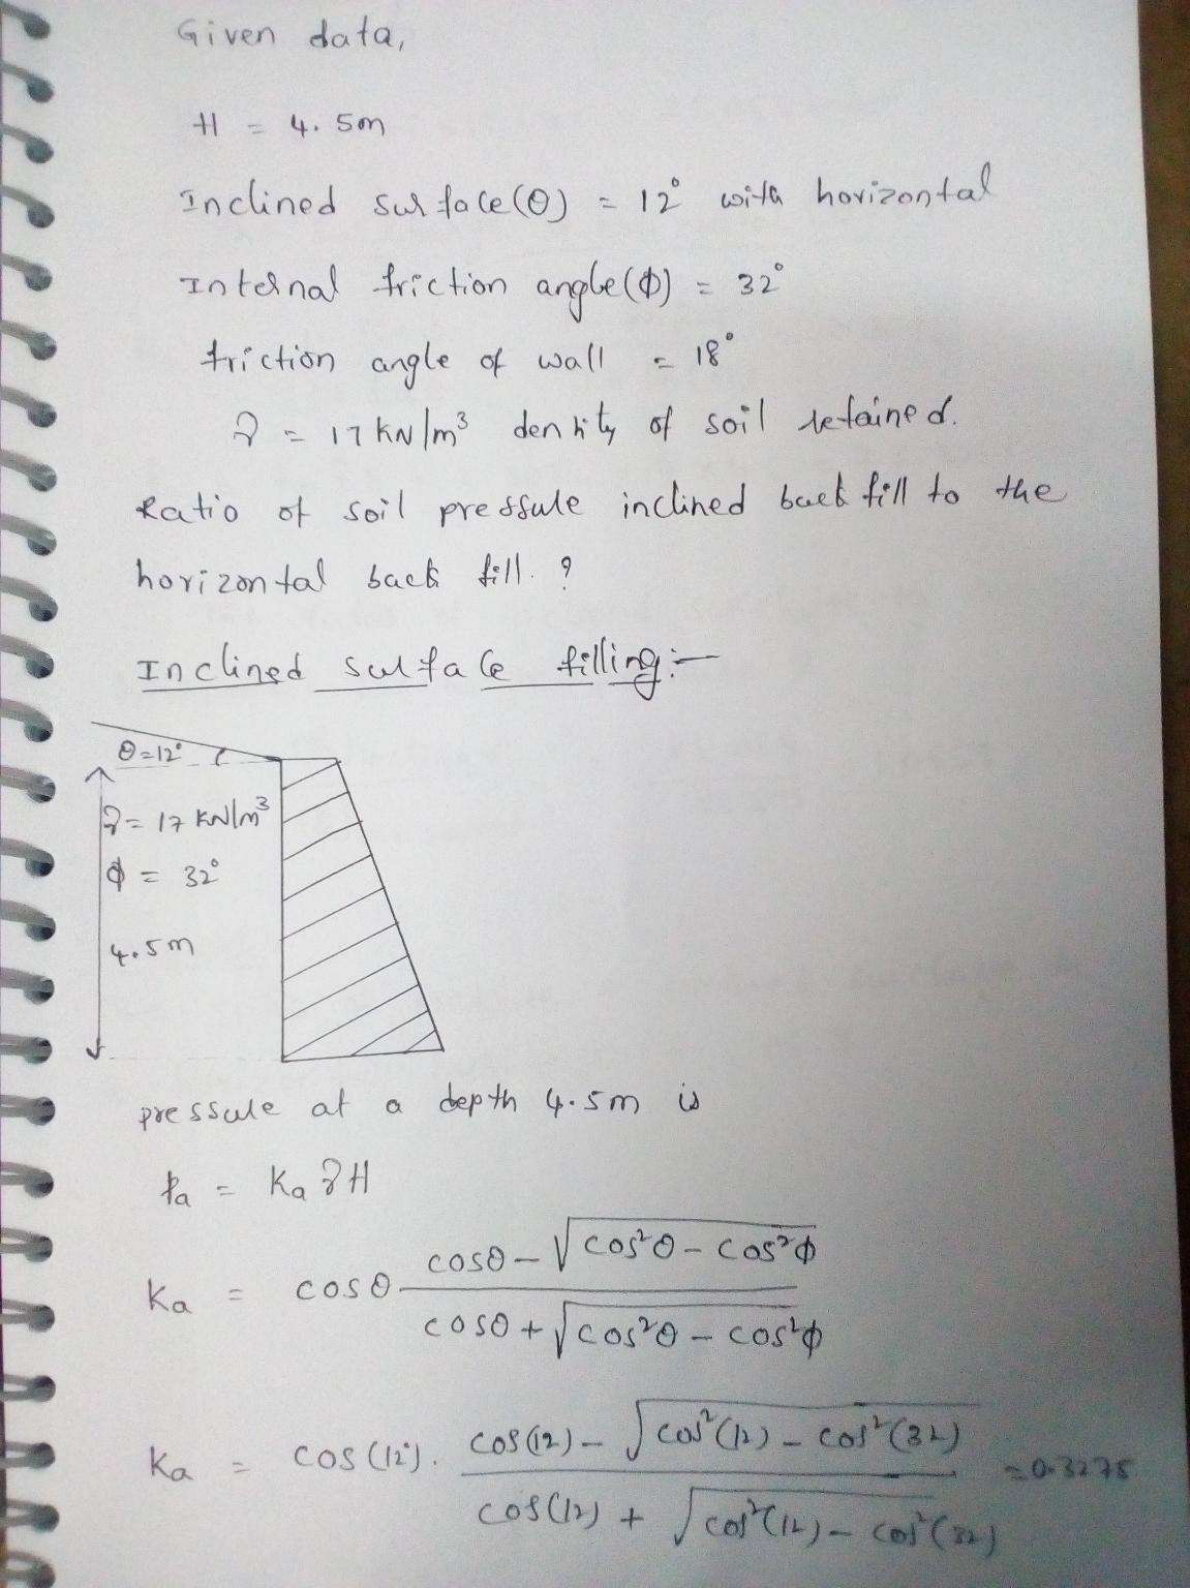 Given data,
H = 4.5m
Inclined surface(θ) = 12° with horizontal
Internal friction angle(ϕ) = 32°
friction angle of wall = 18°
γ = 17 KN/m³ density of soil retained.
Ratio of soil pressure inclined back fill to the
horizontal back fill. ?
Inclined surface filling:-
θ=12°
γ= 17 KN/m³
ϕ = 32°
4.5m
pressure at a depth 4.5m is
Pa = Ka γH
Ka = cosθ (cosθ - √(cos²θ - cos²ϕ)) / (cosθ + √(cos²θ - cos²ϕ))
Ka = cos(12°). (cos(12) - √(cos²(12) - cos²(32))) / (cos(12) + √(cos²(12) - cos²(32))) = 0.3275